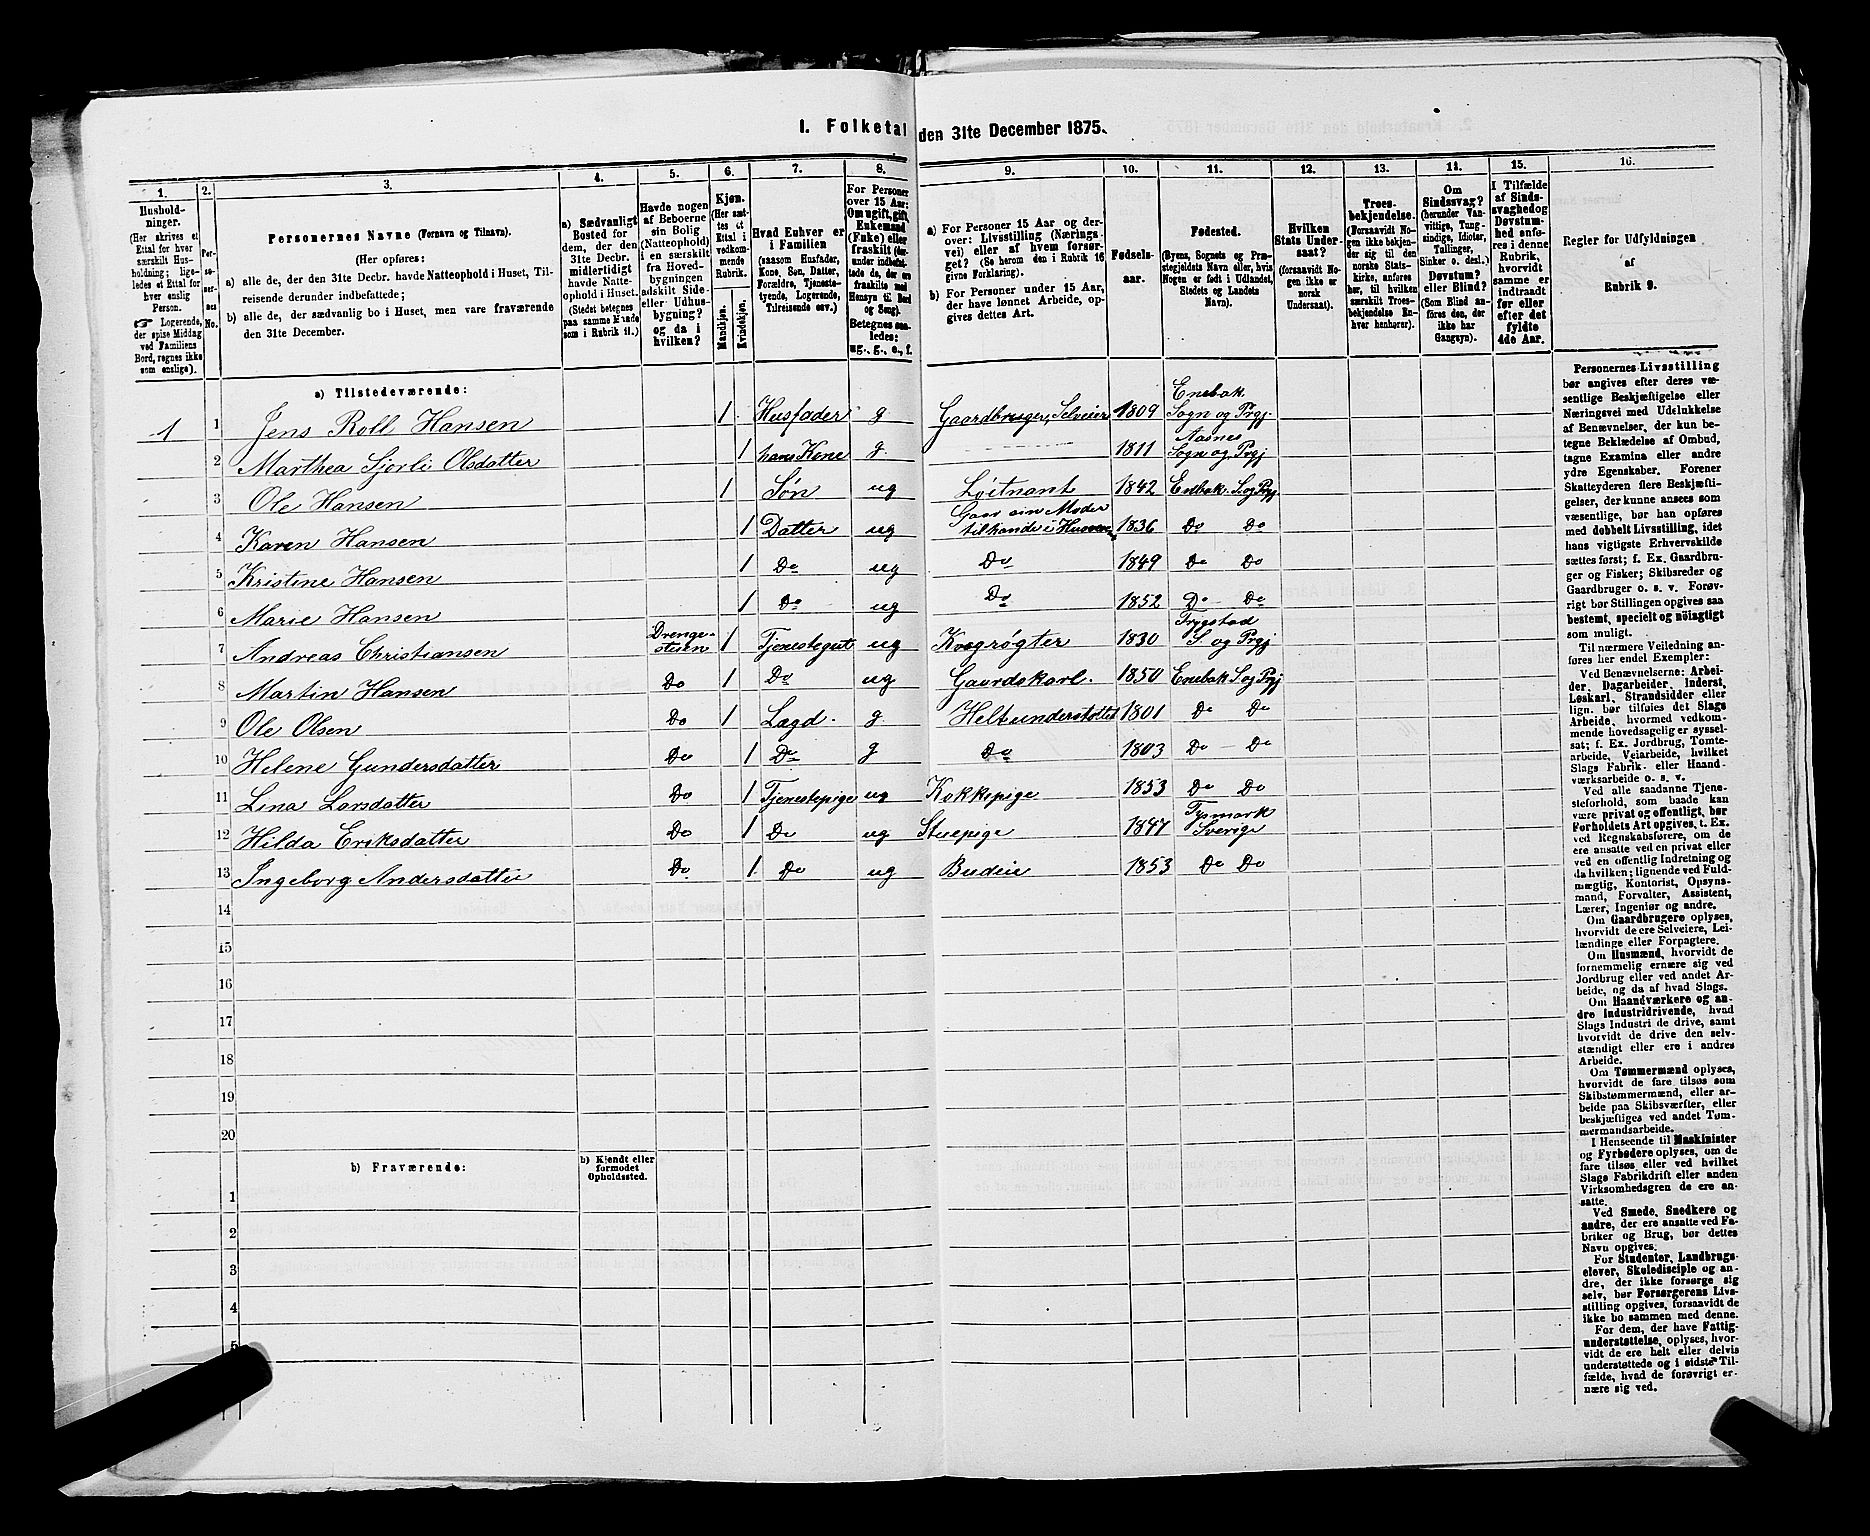 1. Folketal den 31te December 1875.
1.
2.
3.
4.
5.
6.
7.
8.
9.
10.
11.
12.
13.
14.
15.
16.
Husholdninger.
(Her skrives et
Ettal for hver
særskilt Husholdning; ligeledes
et Ettal for
hver enslig
Person.
☞ Logerende,
der spise Middag
ved Familiens
Bord, regnes ikke
som enslige).
Personernes No.
Personernes Navne (Fornavn og Tilnavn).
(Her opføres:
a) alle de, der den 31te Decbr. havde Natteophold i Huset, Tilreisende
derunder indbefattede;
b) alle de, der sædvanlig bo i Huset, men vare fraværende
den 31te December.
a) Sædvanligt
Bosted for
dem, der den
31te Decbr.
midlertidigt
havde Natteophold
i Huset.
(Stedet betegnes
paa samme Maade
som i Rubrik 11.)
Havde nogen
af Beboerne
sin Bolig
(Natteophold)
i en særskilt
fra Hovedbygningen
adskilt Side-
eller Udhusbygning?
og da i
hvilken?
Kjøn.
(Her sættes
et
Ettal i
vedkommende
Rubrik.
Mandkjøn.
Kvindekjøn.
Hvad Enhver er
i Familien
(saasom Husfader,
Kone, Søn, Datter,
Forældre, Tjenestetyende,
Logerende,
Tilreisende osv.)
For Personer
over 15 Aar:
Om ugift, gift,
Enkemand
(Enke) eller
fraskilt (herunder
indbefattede
de, der ere
fraskilte med
Hensyn til Bord
og Seng).
Betegnes saaledes:
ug., g., e., f.
a) For Personer 15 Aar og derover:
Livsstilling (Næringsvei)
eller af hvem forsørget?
(Se herom den i Rubrik 16
givne Forklaring).
b) For Personer under 15 Aar,
der have lønnet Arbeide, opgives
dettes Art.
Fødselsaar.
Fødested.
(Byens, Sognets og Præstegjeldets
Navn eller, hvis
Nogen er født i Udlandet,
Stedets og Landets
Navn).
Hvilken
Stats Undersaat?
(forsaavidt Nogen
ikke er
norsk
Undersaat).
Troesbekjendelse.
(Forsaavidt Nogen
ikke bekjender
sig til den
norske Statskirke,
anføres
her, til hvilken
særskilt Troesbekjendelse
Enhver
henhører).
Om
Sindssvag?
(herunder Vanvittige,
Tungsindige,
Idioter,
Tullinger,
Sinker o. desl.)
Døvstum?
eller Blind?
(Som Blind anføres
den, der
ikke har
Gangsyn).
I Tilfælde
af Sindssvaghed
og
Døvstumhed
anføres
i denne
Rubrik,
hvorvidt
samme er
indtraadt
før eller
efter det
fyldte
4de Aar.
Regler for Udfyldningen
af
Rubrik 9.
a) Tilstedeværende:
1 1 Jens Roll Hansen 1 Husfader g Gaardbruger, Selveier 1809 Enebak Sogn og Prgj
2 Marthea Sjorli Olsdatter 1 hans Kone g 1811 Aasnes Sogn og Prgj
3 Ole Hansen 1 Søn ug Løitnant 1842 Enebak S. og Prgj
4 Karen Hansen 1 Datter ug Gaar sin Moder tilhaande i Huset 1836 Do Do
5 Kristine Hansen 1 Do ug Do 1849 Do Do
6 Marie Hansen 1 Do ug Do 1852 Do Do
7 Andreas Christiansen Drengestuen 1 Tjenestegut ug Kvægrøgter 1830 Trygstad S. og Prgj
8 Martin Hansen Do 1 Do ug Gaardskarl. 1850 Enebak S. og Prgj
9 Ole Olsen Do 1 Lægd. g. Helt understøttet 1801 Do Do
10 Helene Gundersdatter Do 1 Do g Do 1803 Do Do
11 Lina Larsdatter Do 1 Tjenestepige ug Kokkepige 1853 Do Do
12 Hilda Eriksdatter Do 1 Do ug Stuepige 1847 Sverige
13 Ingeborg Andersdatter Do 1. Do ug Budeie 1853 Do Do
14
15
16
17
18
19
20
b) Fraværende:
b) Kjendt eller
formodet
Opholdssted.
1
2
3
4
5
Personernes Livsstilling
bør angives efter deres væsentlige
Beskjæftigelse eller
Næringsvei med Udelukkelse
af Benævnelser, der kun betegne
Beklædelse af Ombud,
tagne Examina eller andre
ydre Egenskaber. Forener
Skatteyderen flere Beskjæftigelser,
der kunne ansees som
væsentlige, bør han opføres
med dobbelt Livsstilling, idet
hans vigtigste Erhvervskilde
sættes først; f. Ex. Gaardbruger
og Fisker; Skibsreder og
Gaardbruger o. s. v. Forøvrigt
bør Stillingen opgives saa
bestemt, specielt og nøiagtigt
som muligt.
Til nærmere Veiledning anføres
her endel Exempler:
Ved Benævnelserne: Arbeider,
Dagarbeider, Inderst,
Løskarl, Strandsidder eller
lign. bør tilføies det Slags
Arbeide, hvormed vedkommende
hovedsagelig er sysselsat;
f. Ex. Jordbrug, Tomtearbeide,
Veiarbeide, hvilket
Slags Fabrik- eller Haandværksarbeide
o. s. v.
Ved alle saadanne Tjenesteforhold,
som baade kan
være privat og offentligt, bør
Forholdets Art opgives, t. Ex.
ved Regnskabsførere, om de
ere ansatte ved en privat eller
ved en offentlig Indretning og
da hvilken; lignende ved Fuldmægtig,
Kontorist, Opsynsmand,
Forvalter, Assistent,
Lærer, Ingeniør og andre.
Om Gaardbrugere oplyses,
hvorvidt de ere Selveiere, Leilændinge
eller Forpagtere.
Om Husmænd, hvorvidt de
fornemmelig ernære sig ved
Jordbrug eller ved andet Arbeide,
og da af hvad Slags.
Om Haandværkere og andre
industridrivende, hvad
Slags Industri de drive, samt
hvorvidt de drive den selvstændigt
eller ere i andres
Arbeide.
Om Tømmermænd oplyses,
hvorvidt de fare tilsøs som
Skibstømmermænd, eller arbeide
paa Skibsværfter, eller
beskjæftiges ved andet Tømmermandsarbeide.
I Henseende til Maskinister
og Fyrbødere oplyses, om de
fare tilsøs eller ved hvilket
Slags Fabrikdrift eller anden
Virksomhedsgren de ere ansatte.
Ved Smede, Snedkere og
andre, der ere ansatte ved Fabriker
og Brug, bør dettes
Navn opgives.
For Studenter, Landbrugselever,
Skoledisciple og andre,
der ikke forsørge sig
selv, bør Forsørgerens Livsstilling
opgives, forsaavidt de
ikke bo sammen med denne.
For dem, der have Fattigunderstøttelse,
oplyses, hvorvidt
de ere helt eller delvis
understøttede og i sidste Tilfælde,
hvad de forøvrigt ernære
sig ved.